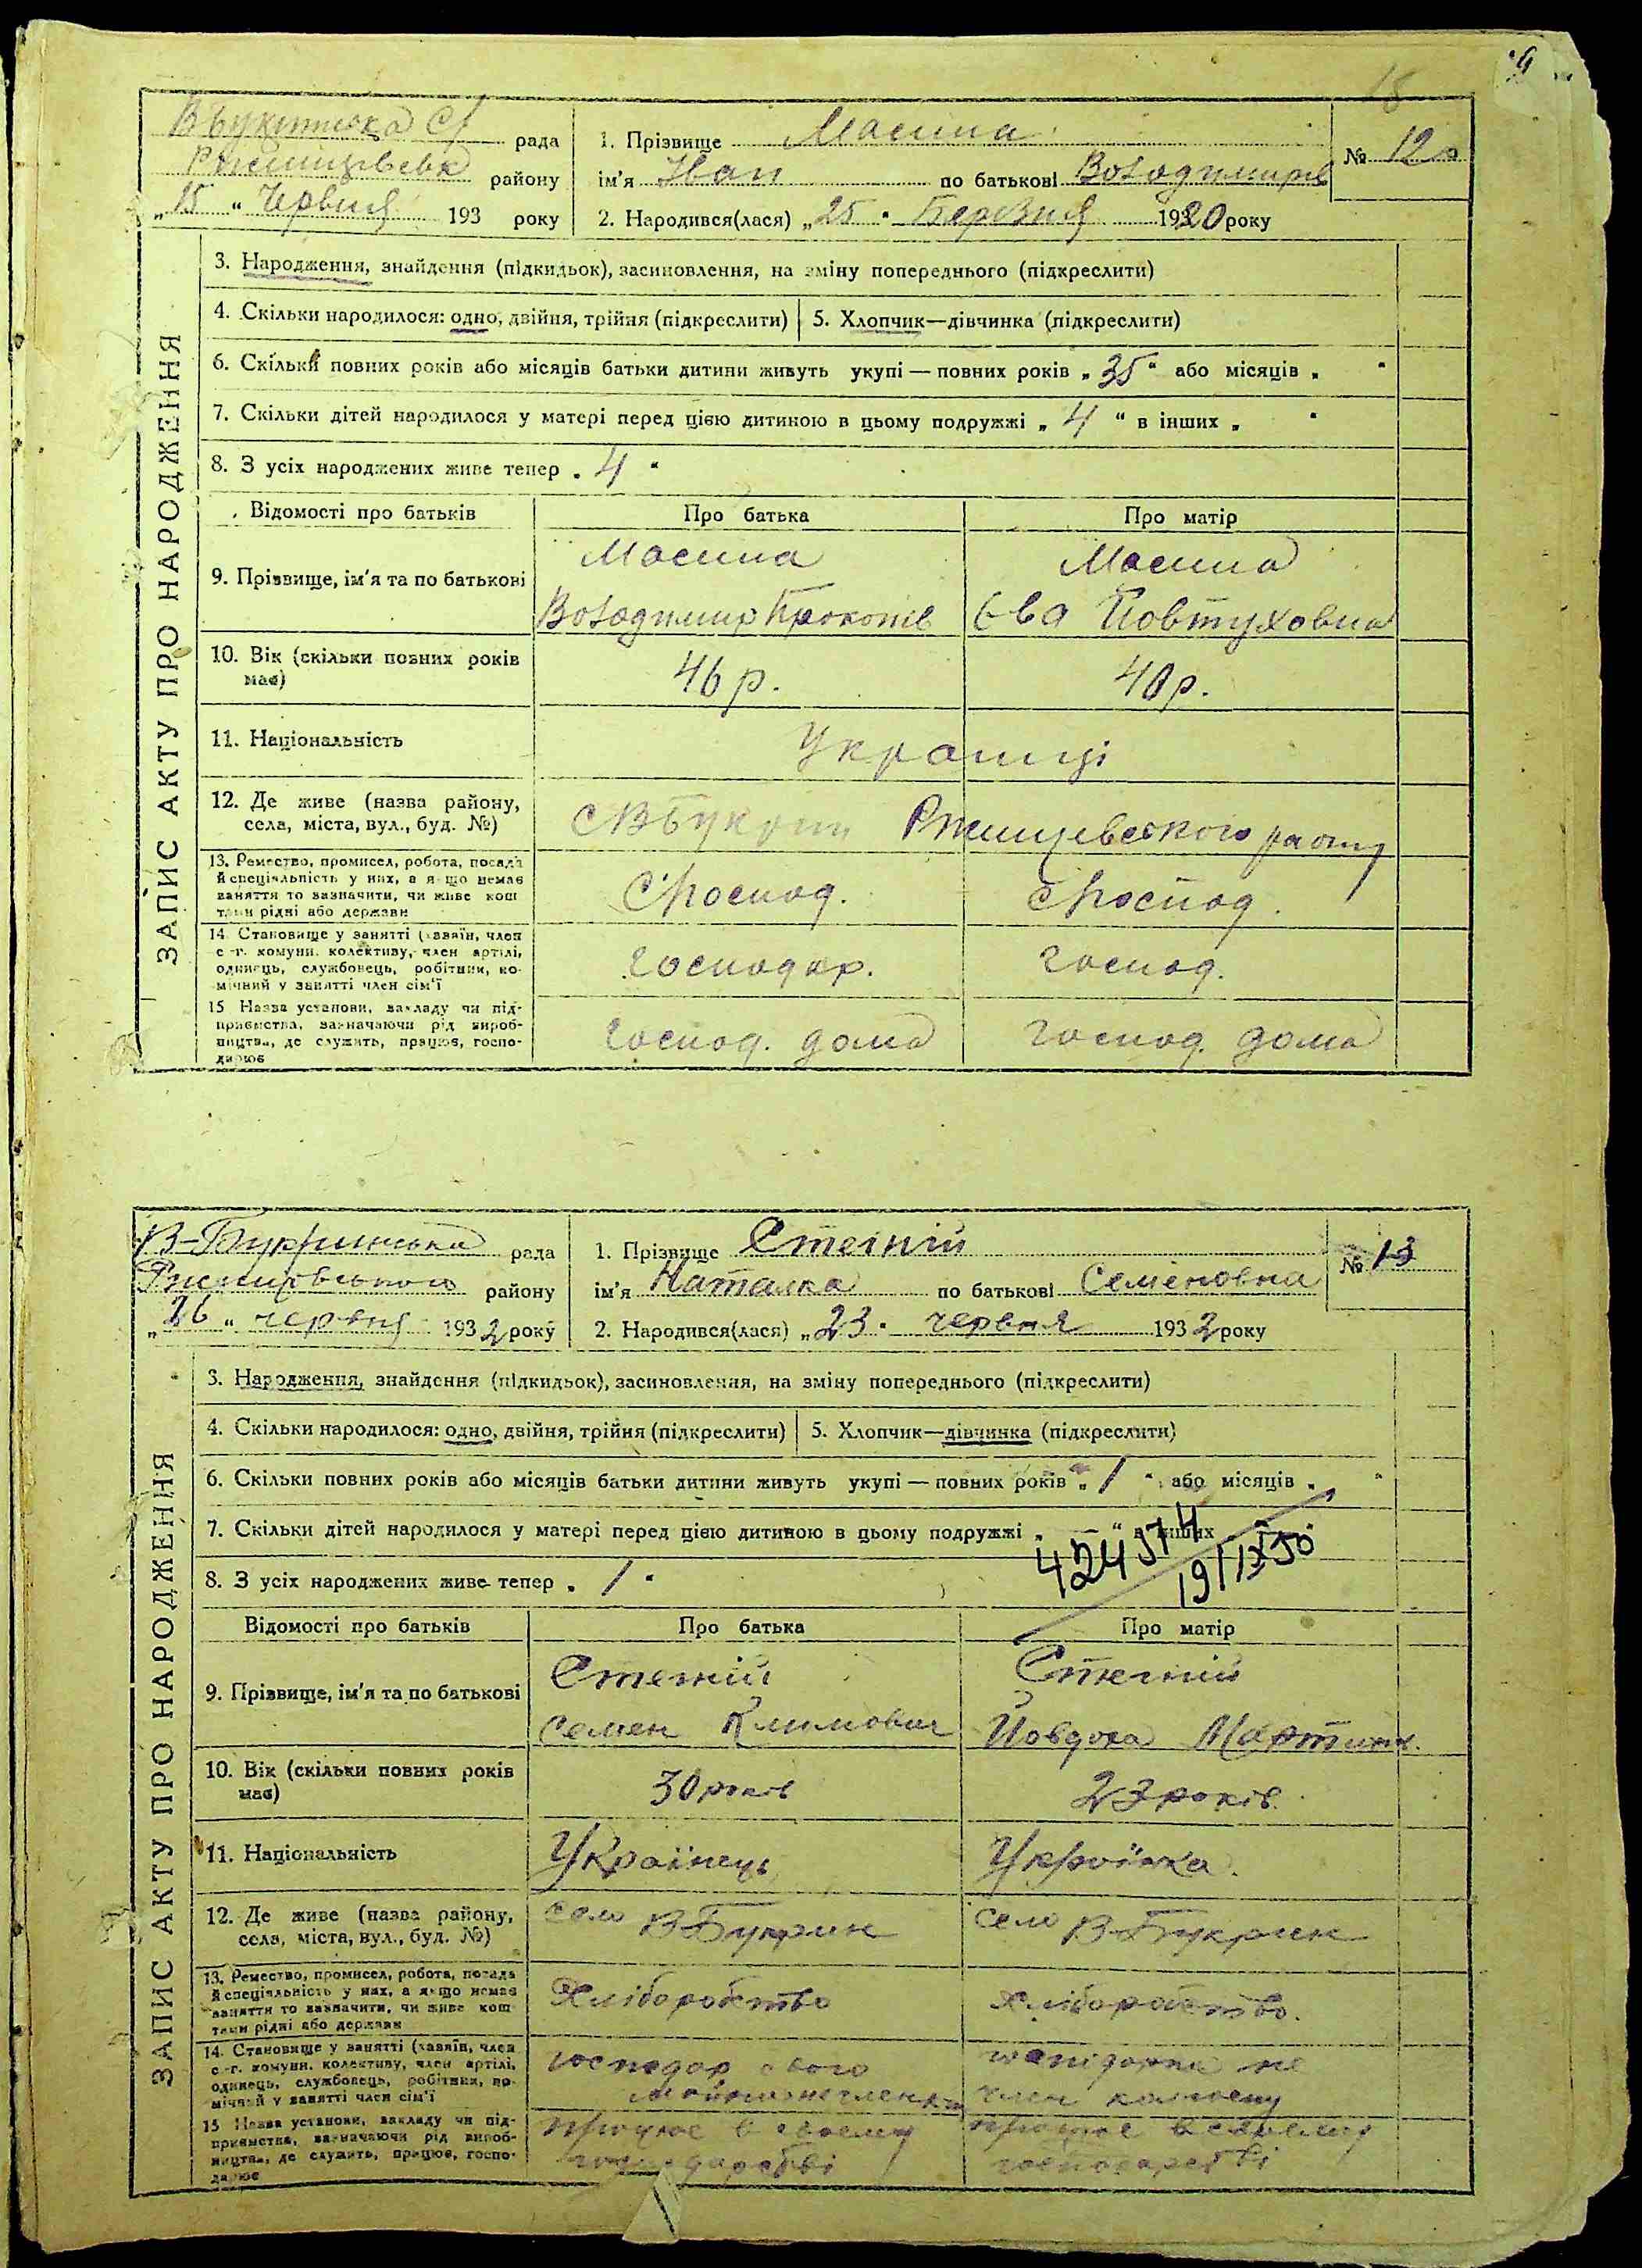 18
9
В Букринська С/ рада
Ржищівськ району
„15“ Червня 193 року
1. Прізвище Масина
ім'я Іван по батькові Володимирів
№ 12
2. Народився(лася) „25“ Березня 1920 року
ЗАПИС АКТУ ПРО НАРОДЖЕННЯ
3. Народження, знайдення (підкидьок), засиновлення, на зміну попереднього (підкреслити)
4. Скільки народилося: одно, двійня, трійня (підкреслити)
5. Хлопчик—дівчинка (підкреслити)
6. Скільки повних років або місяців батьки дитини живуть укупі — повних років „35“ або місяців „ “
7. Скільки дітей народилося у матері перед цією дитиною в цьому подружжі „4“ в інших „ “
8. З усіх народжених живе тепер „4“
Відомості про батьків
Про батька
Про матір
9. Прізвище, ім'я та по батькові
Масина
Володимир Прокопів
Масина
Єва Йовтуховна
10. Вік (скільки повних років
має)
46 р.
40 р.
11. Національність
Українці
12. Де живе (назва району,
села, міста, вул., буд. №)
С В Букрин Ржищевського району
13. Ремество, промисел, робота, посада
й спеціяльність у них, а якщо немає
заняття то зазначити, чи живе кош
тами рідні або держави
Сгоспод.
Сгоспод.
14. Становище у занятті (хазяїн, член
с.-г. комуни, колективу, член артілі,
одинець, службовець, робітник, по-
мічний у занятті член сім'ї
господар.
господ.
15 Назва установи, закладу чи під-
приємства, зазначаючи рід вироб-
ництва, де служить, працює, госпо-
дарює
господ. дома
господ. дома
В-Букринська рада
Ржищівського району
„26“ червня 1932 року
1. Прізвище Стегній
ім'я Наталка по батькові Семеновна
№ 13
2. Народився(лася) „23“ червня 1932 року
ЗАПИС АКТУ ПРО НАРОДЖЕННЯ
3. Народження, знайдення (підкидьок), засиновлення, на зміну попереднього (підкреслити)
4. Скільки народилося: одно, двійня, трійня (підкреслити)
5. Хлопчик—дівчинка (підкреслити)
6. Скільки повних років або місяців батьки дитини живуть укупі — повних років „1“ або місяців „ “
7. Скільки дітей народилося у матері перед цією дитиною в цьому подружжі „—“ в інших
8. З усіх народжених живе тепер „1“
Відомості про батьків
Про батька
Про матір
9. Прізвище, ім'я та по батькові
Стегній
Семен Климович
Стегній
Йовдоха Мартинн.
10. Вік (скільки повних років
має)
30 років
23 років.
11. Національність
Українець
Українка.
12. Де живе (назва району,
села, міста, вул., буд. №)
село В-Букрин
село В-Букрин
13. Ремество, промисел, робота, посада
й спеціяльність у них, а якщо немає
заняття то зазначити, чи живе кош
тами рідні або держави
Хліборобство
Хліборобство.
14. Становище у занятті (хазяїн, член
с.-г. комуни, колективу, член артілі,
одинець, службовець, робітник, по-
мічний у занятті член сім'ї
господар свого
не
член колгоспу
15 Назва установи, закладу чи під-
приємства, зазначаючи рід вироб-
ництва, де служить, працює, госпо-
дарює
працює в своєму
господарстві
працює в своєму
господарстві